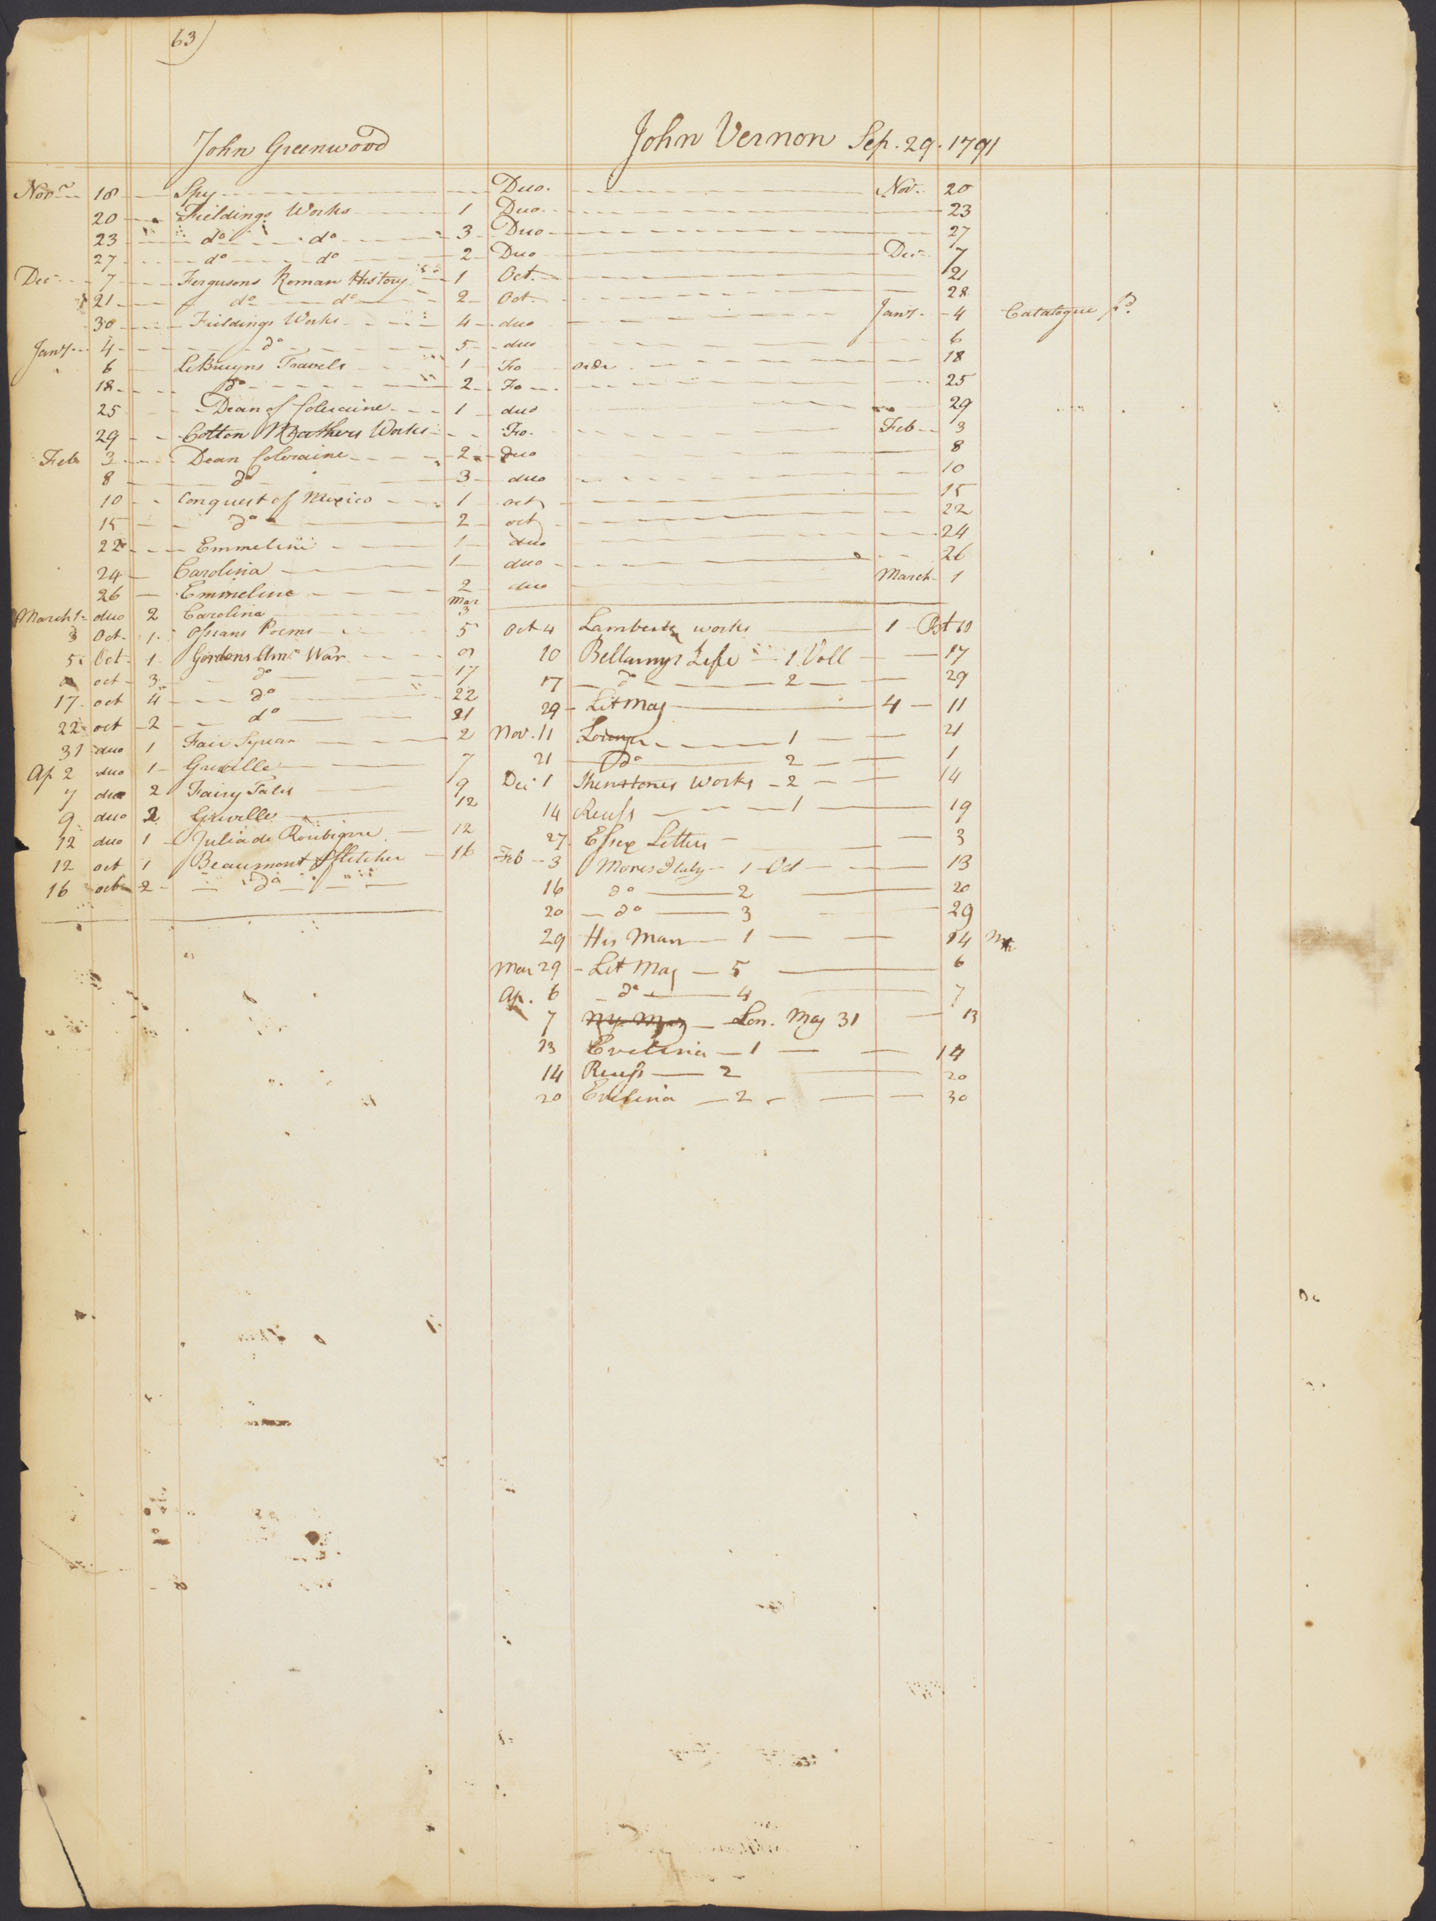 63)
John Greenwood
John Vernon Sep. 29. 1791
Novr 18 Spy Duo. Nov. 20
20 Fieldings Works 1 Duo. 23
23 do do 3 Duo 27
27 do do 2 Duo Dec 7
Dec 7 Fergusons Roman History 1 Oct. 21
21 do do 2 Oct. 28
30 Fieldings Works 4 duo Jany 4 Catalogue pd
Jany 4 do 5 duo 6
6 LeBruyns Travels 1 Fo order 18
18 do 2 Fo 25
25 Dean of Coleraine 1 duo 29
29 Cotton Mathers Works Fo. Feb 3
Feb 3 Dean Coleraine 2 duo 8
8 do 3 duo 10
10 Conquest of Mexico 1 oct 15
15 do 2 oct 22
22 Emmeline 1 duo 24
24 Carolina 1 duo 26
26 Emmeline 2 duo March 1
March 1 duo 2 Carolina Mar 3
3 Oct 1 Ossians Poems 5
5 Oct 1 Gordons Amn War 9
9 oct 3 do 17
17 oct 4 do 22
22 oct 2 do 31
31 duo 1 Fair Syrian 2
Ap 2 duo 1 Greville 7
7 duo 2 Fairy Tales 9
9 duo 2 Greville 12
12 duo 1 Julia de Roubigne 12
12 oct 1 Beaumont & Fletcher 16
16 oct 2 do
Oct 4 Lamberts works 1 Oct 10
10 Bellamys Life 1 Voll 17
17 do 2 29
29 Lit Mag 4 11
Nov. 11 1 21
21 do 2 1
Dec 1 Shenstones Works 2 14
14 Recess 1 19
27 Essex Letters 3
Feb 3 Mores Italy 1 Oct 13
16 do 2 20
20 do 3 29
29 His Man 1 14
Mar 29 Lit Mag 5 6
Ap. 6 do 4 7
7 Lon. Mag 31 13
13 Evelina 1 14
14 Recess 2 20
20 Evelina 2 30